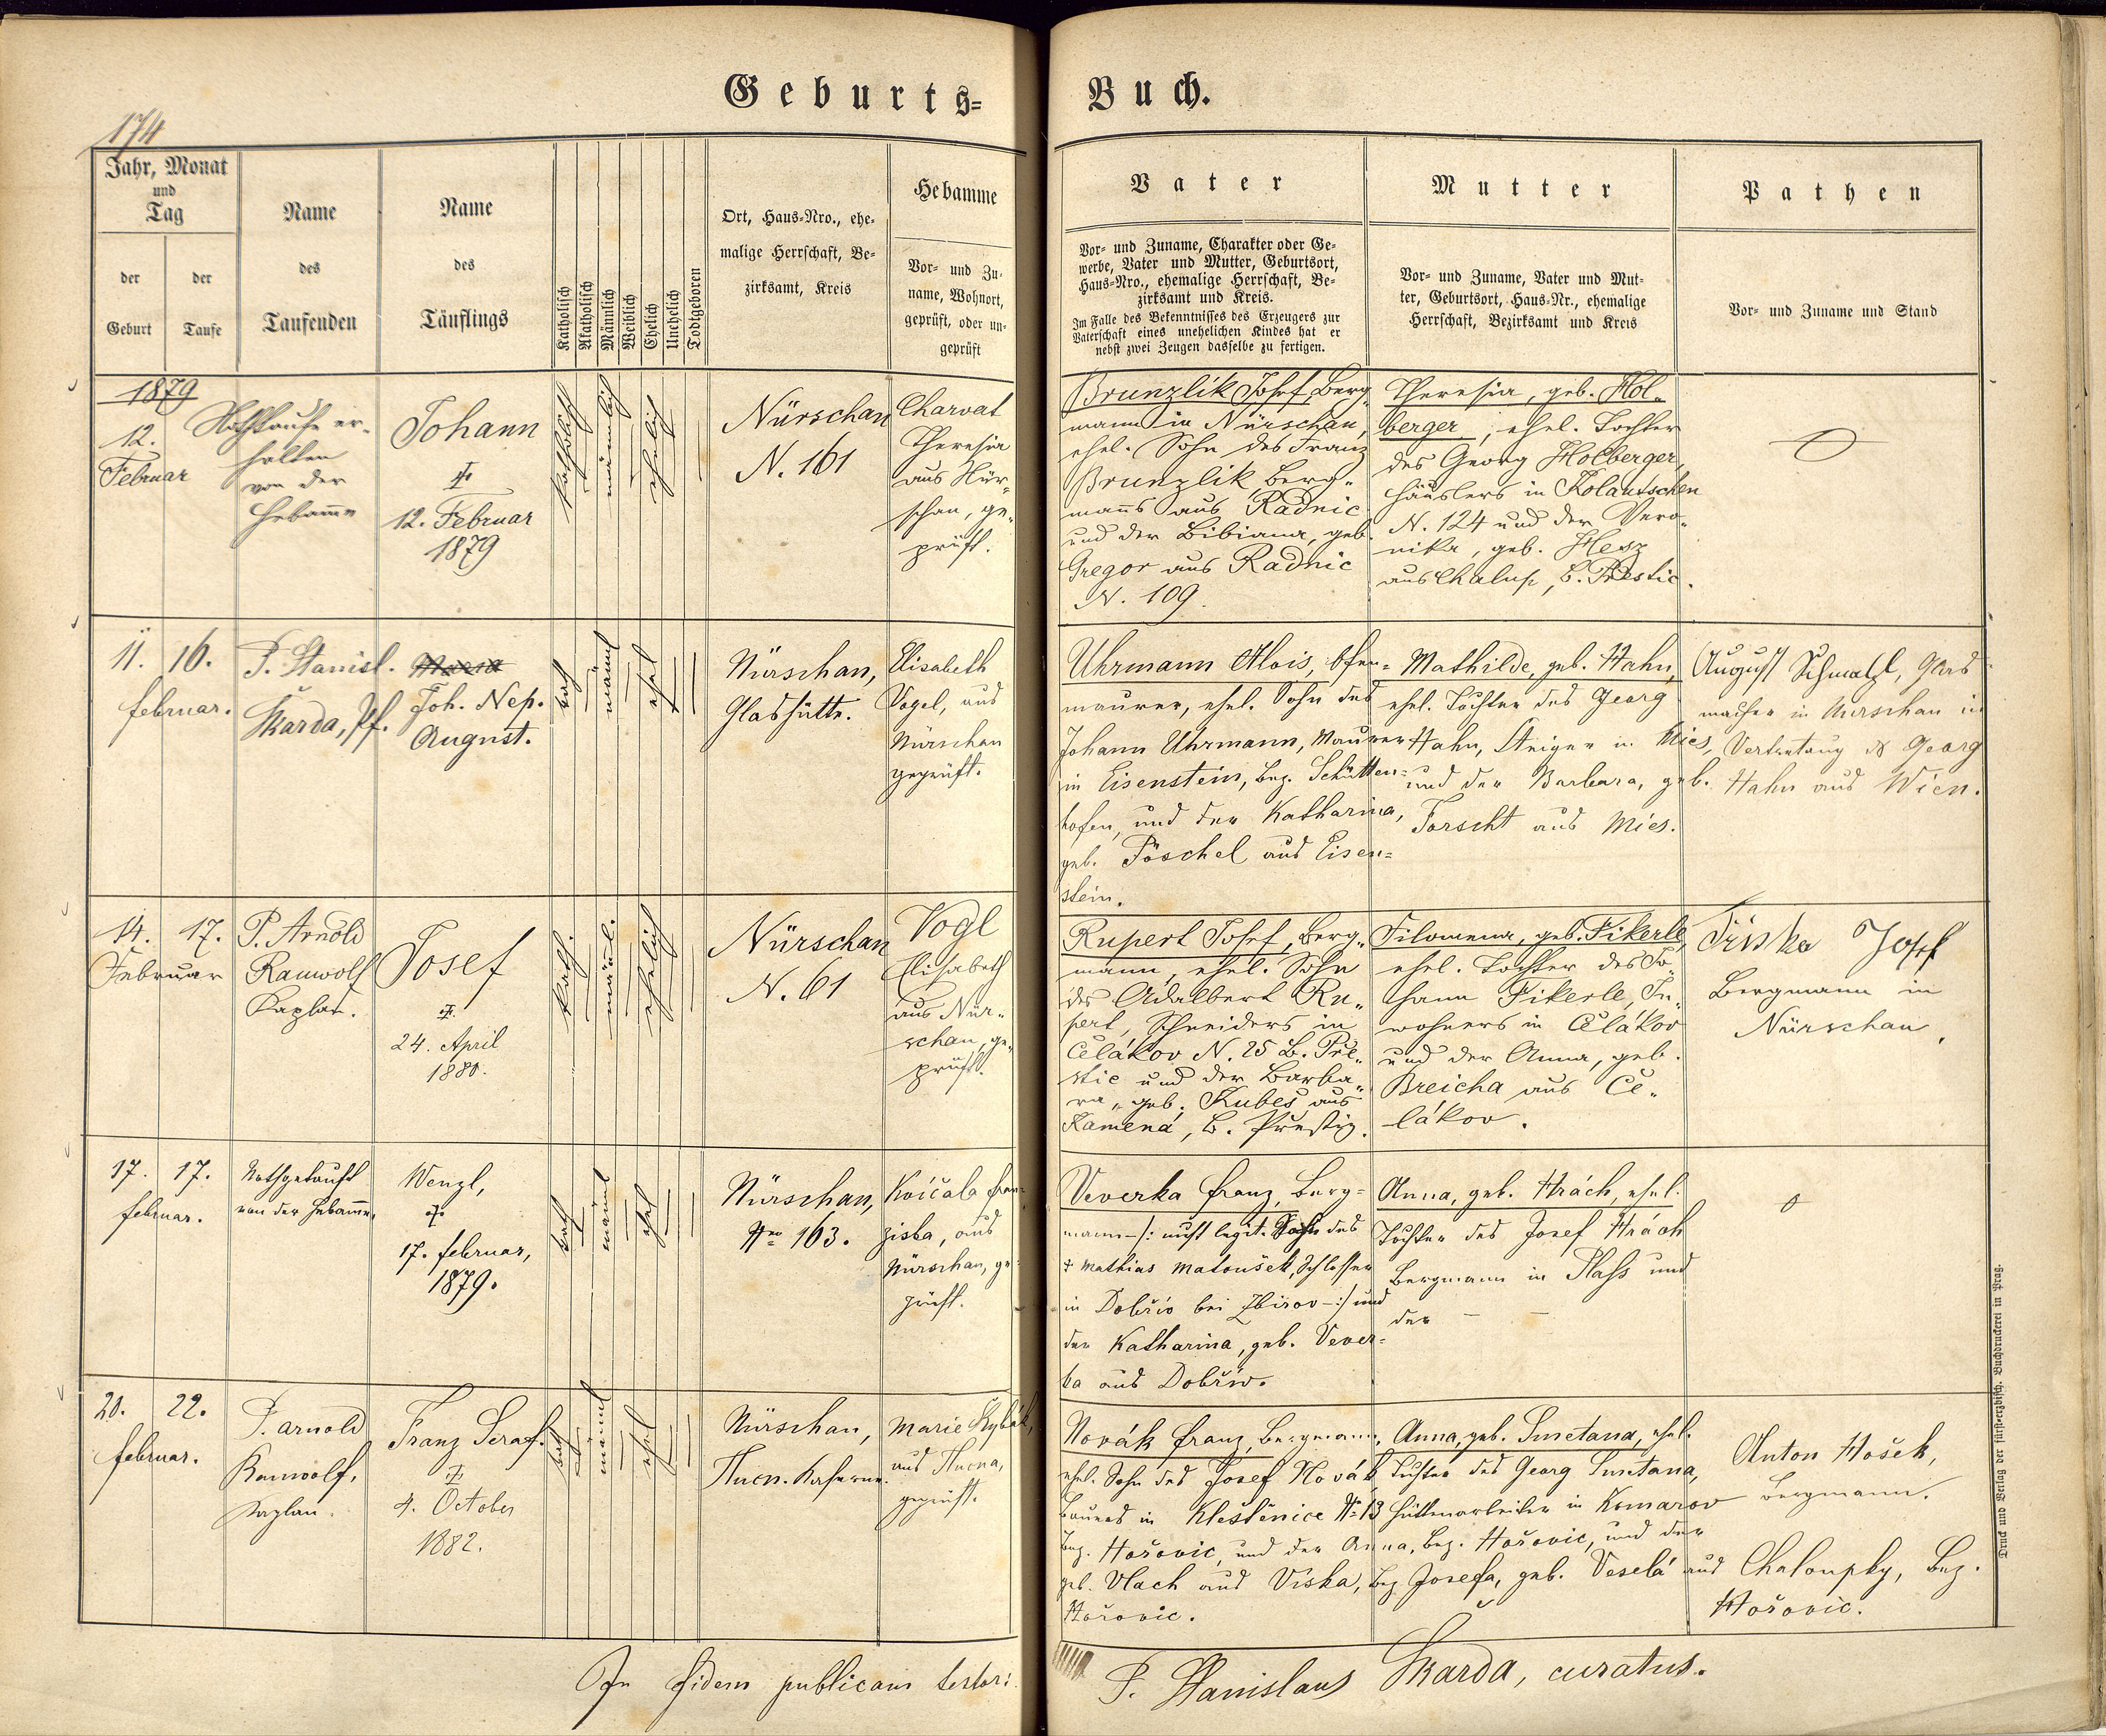 Geburts=
Buch.
174
Jahr, Monat
und
Tag
der
Geburt
der
Taufe
Name
des
Taufenden
Name
des
Täuflings
Katholisch
Akatholisch
Männlich
Weiblich
Ehelich
Unehelich
Todtgeboren
Ort, Haus=Nro., ehe=
malige Herrschaft, Be=
zirksamt, Kreis
Hebamme
Vor= und Zu=
name, Wohnort,
geprüft, oder un=
geprüft
Vater
Vor= und Zuname, Charakter oder Ge=
werbe, Vater und Mutter, Geburtsort,
Haus=Nro., ehemalige Herrschaft, Be=
zirksamt und Kreis.
Im Falle des Bekenntnisses des Erzeugers zur
Vaterschaft eines unehelichen Kindes hat er
nebst zwei Zeugen dasselbe zu fertigen.
Mutter
Vor= und Zuname, Vater und Mut=
ter, Geburtsort, Haus=Nr., ehemalige
Herrschaft, Bezirksamt und Kreis
Pathen
Vor= und Zuname und Stand
1879
12.
Februar
Nothtaufe er-
halten
von der
Hebamme
Johann
†
12. Februar
1879
katholisch
männlich
ehelich
Nürschan
N. 161
Charvat
Theresia
aus Nür-
schan, ge-
prüft.
Brunzlik Josef, Berg-
mann in Nürschan,
ehel. Sohn des Franz
Brunzlik Berg-
manns aus Radnic
und der Bibiana, geb.
Gregor aus Radnic
N. 109.
Theresia, geb. Hol-
berger, ehel. Tochter
des Georg Holberger,
Häuslers in Kolautschen
N. 124 und der Vero-
nika, geb. Hesz
aus Chalup, B. Prestic.
11. 16.
Februar.
P. Stanisl.
Škarda, Pf.
Joh. Nep.
August.
kath
männl
ehel
Nürschan,
Glashütte.
Elisabeth
Vogel, aus
Nürschan
geprüft.
Uhrmann Alois, Ofen=
maurer, ehel. Sohn des
Johann Uhrmann, Maurer
in Eisenstein, Bez. Schütten=
hofen, und der Katharina,
geb. Pöschel aus Eisen=
stein.
Mathilde, geb. Hahn,
ehel. Tochter des Georg
Hahn, Steiger in Mies,
und der Barbara, geb.
Forscht aus Mies.
August Schmalzl, Glas
macher in Nürschan in
Vertretung des Georg
Hahn aus Wien.
14. 17.
Februar
P. Arnold
Rauwolf
Kaplan.
Josef
†
24. April
1880.
kath.
männl.
ehelich
Nürschan
N. 61
Vogl
Elisabeth
aus Nür-
schan, ge-
prüft.
Rupert Josef, Berg-
mann, ehel. Sohn
des Adalbert Ru-
pert, Schneiders in
Čelákov N. 25 B. Pře-
stic und der Barba-
ra, geb. Kubeš aus
Kamena, B. Prestiz.
Filomena, geb. Fikerle,
ehel. Tochter des Jo-
hann Fikerle, In-
wohners in Čelákov
und der Anna, geb.
Breicha aus Če-
lákov.
Tříska Josef
Bergmann in
Nürschan,
17. 17.
Februar.
Nothgetauft
von der Hebamme
Wenzl,
†
17. Februar,
1879.
kath
männl
ehel
Nürschan,
Nro 163.
Kvíčala Fran=
ziska, aus
Nürschan, ge=
prüft.
Veverka Franz, Berg=
mann -/: nicht legit. Sohn des
† Mathias Matoušek, Schlosser
in Dobřiv bei Zbirov -:/ und
der Katharina, geb. Vever=
ka aus Dobřiv.
Anna, geb. Hrách, ehel.
Tochter des Josef Hrách
Bergmann in Plass und
der — —
20. 22.
Februar.
P. Arnold
Rauwolf,
Kaplan.
Franz Seraf.
†
4. October
1882.
kath
männl
ehel
Nürschan,
Marie
aus
geprüft.
Novák Franz, Bergmann,
ehel. Sohn des Josef Novák,
Bauers in Kleštěnice N= 13
Bez. Hořovic, und der Anna,
geb. Vlach aus Viska, Bez.
Hořovic.
Anna, geb. Smetana, ehel.
Tochter des Georg Smetana,
Hüttenarbeiter in Komarov
Bez. Hořovic, und der
Josefa, geb. Veselá aus Chaloupky, Bez.
Hořovic.
Anton Hošek,
Bergmann.
In fidem publicam testor:
P. Stanislaus Škarda, curatus.
Druck und Verlag der fürst=erzbisch. Buchdruckerei in Prag.